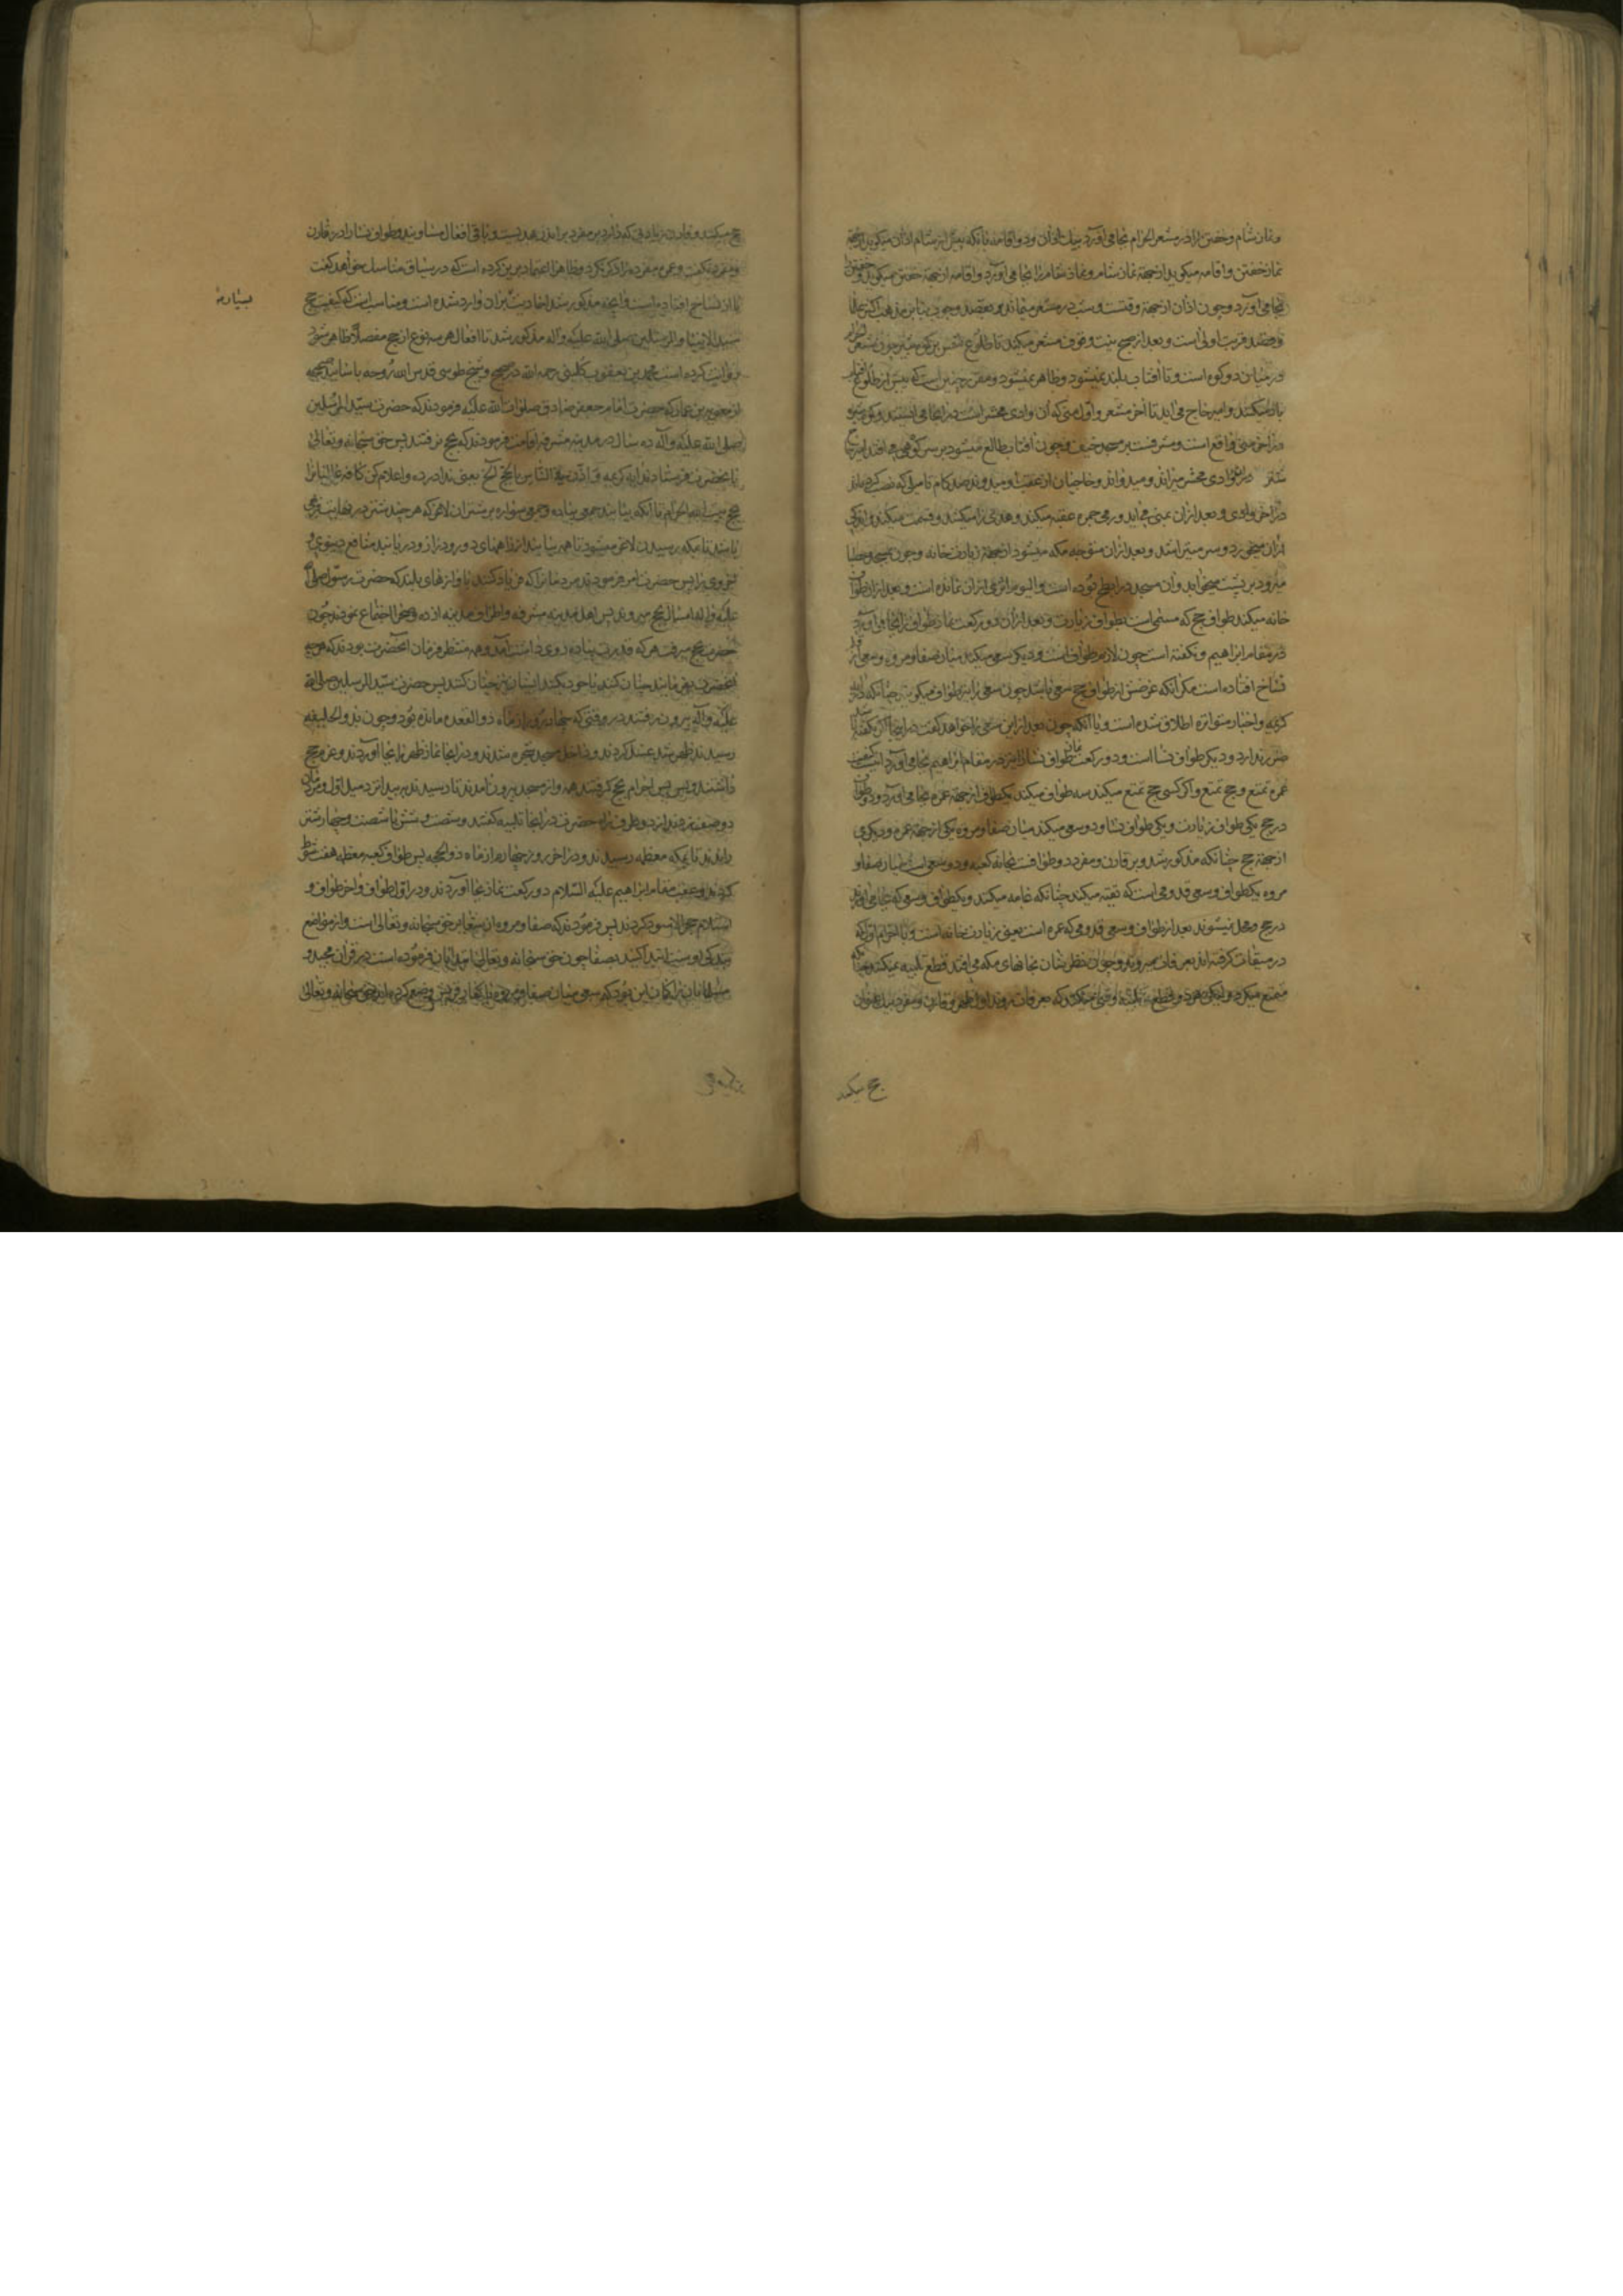 و نماز شام و خفتن را در مشعر الحرام بجا می آورد بیك اذان و دو اقامه بآنکه پیش از شام اذان میکوید از جهة
نماز خفتن و اقامه میکوید از جهة نماز شام و نماز شام را بجا می آورد و اقامه از جهة خفتن میکوید و خفتن را
بجا می آورد و چون اذان از جهة وقتست و شب در مشعر میماند و بقصد وجوب بنابر مذهب اکثر علما
و قصد قربت اولی است و بعد از صبح نیت وقوف مشعر میکند تا طلوع شمس بر کوه ثبیر چون مشعر الحرام
در میان دو کوه است و تا آفتاب بلند نمیشود ظاهر نمیشود و مقرر چنین است که پیش از طلوع
بار میکنند و امیر حاج می آید تا آخر مشعر و اول منی که آن وادی محشر است در آنجا می ایستند و کوه ثبیر
در آخر منی واقع است و مشرفست بر مسجد خیف و چون آفتاب طالع میشود بر سر کوهی می افتد امیر حاج
شتر در وادی محشر میراند و میدواند و حاجیان از عقب او میدوند صد کام تا میلی که نصب کرده اند
در آخر وادی و بعد از آن بمنی می آید و رمی جمره عقبه میکند و هدی را میکشد و قسمت میکند و اندکی
از آن میخورد و سر میتراشد و بعد از آن متوجه مکه میشود از جهة زیارت خانه و چون بمسجد حصبا
میرود بر پشت میخوابد و آن مسجد در ابطح بوده است و الیوم اثری از آن نمانده است و بعد از آن طواف
خانه میکند طواف حج که مسمی است بطواف زیارت و بعد از آن دو رکعت نماز طواف را بجا می آورد
در مقام ابراهیم و نکفته است چون لازم طواف است و دیکر سعی میکند میان صفا و مروه و سعی از قلم
نساخ افتاده است مکر آنکه غرضش از طواف حج سعی باشد چون سعی را نیز طواف میکویند چنانکه در آیه
کریمه و اخبار متواتره اطلاق شده است و یا آنکه چون بعد از این سعی را خواهد کفت در اینجا اکر نکفته باشد
ضرر ندارد و دیکر طواف نسا است و دو رکعت نماز طواف نسا را نیز در مقام ابراهیم بجا می آورد اینست کیفیت
عمره تمتع و حج تمتع و اکر کسی حج تمتع میکند سه طواف میکند یکطواف از جهة عمره بجا می آورد و دو طواف
در حج یکی طواف زیارت و یکی طواف نسا و دو سعی میکند میان صفا و مروه یکی از جهة عمره و دیکری
از جهة حج چنانکه مذکور شد و بر قارن و مفرد دو طوافست بخانه کعبه و دو سعی است میان صفا و
مروه یکطواف و سعی قدومی است که تقیه میکند چنانکه عامه میکنند و یکطواف و سعی که بجا می آورند
در حج و محل نمیشوند بعد از طواف و سعی قدومی که عمره است یعنی زیارت خانه است و با احرام اول که
در میقات کرفته اند بعرفات میروند و چون نظرشان بخانهای مکه می افتد قطع تلبیه نمیکنند چنانکه
متمتع میکرد و لیکن هر دو قطع تلبیه وقتی میکنند که بعرفات روند اول ظهر و قارن و مفرد بیك عنوان
حج میکنند
حج میکنند و قارن زیادتی که دارد بر مفرد براندن هدیست و باقی افعال مساویند و طواف نسا را در قارن
و مفرد نکفت و عمره مفرده را ذکر نکرد و ظاهرا اعتماد برین کرده است که در سیاق مناسك خواهد کفت
یا از نساخ افتاده است و آنچه مذکور شد احادیث بر آن وارد شده است و مناسب است که کیفیت حج
بسیاره
سید الانبیا و المرسلین صلی الله علیه و آله مذکور شد تا افعال هر سه نوع از حج مفصلا ظاهر شود
روایت کرده است محمد بن یعقوب کلینی رحمه الله در صحیح و شیخ طوسی قدس الله روحه باسانید صحیحه
از معویة بن عمار که حضرت امام جعفر صادق صلوات الله علیه فرمودند که حضرت سید المرسلین
صلی الله علیه و آله ده سال در مدینه مشرفه اقامت فرمودند که بحج نرفتند پس حق سبحانه و تعالی
بآنحضرت فرستاد این آیه کریمه و اذن فی الناس بالحج الخ یعنی ندا در ده و اعلام کن کافه عالمیانرا
بحج بیت الله الحرام تا آنکه بیایند جمعی پیاده و جمعی سواره بر شتران لاغر که هر چند شتر در نهایت فربهی
باشد تا بمکه رسیدن لاغر میشود تا همه بیایند از راههای دور و دراز و دریابند منافع دنیوی و
اخروی را پس حضرت امر فرمودند مردمانرا که فریاد کنند بآوازهای بلند که حضرت رسول صلی الله
علیه و آله امسال بحج میروند پس اهل مدینه مشرفه و اطراف مدینه آمده و صحرا اجتماع نمودند چون
حضرت بحج میرفت هر که قدرت پیاده روی داشت آمد و همه منتظر فرمان آنحضرت بودند که هر چه
آنحضرت بفرمایند چنان کنند یا خود بکنند ایشان نیز چنان کنند پس حضرت سید المرسلین صلی الله
علیه و آله بیرون رفتند در وقتی که چهار روز از ماه ذو القعده مانده بود و چون بذو الحلیفه
رسیدند ظهر شد غسل کردند و داخل مسجد شجره شدند و در آنجا نماز ظهر را بجا آوردند و عزم حج
داشتند و پس احرام بحج کرفتند همه و از مسجد بیرون آمدند تا رسیدند به بیدا نزد میل اول و مردمان
دو صف زدند از دو طرف راه حضرت در آنجا تلبیه کفتند و شصت و شش یا شصت و چهار شتر
راندند تا بمکه معظمه رسیدند و در آخر روز چهارم از ماه ذو الحجه پس طواف کعبه معظمه هفت شوط
کردند و عقب مقام ابراهیم علیه السلام دو رکعت نماز بجا آوردند و در اول طواف و آخر طواف و
استلام حجر الاسود کردند پس فرمودند که صفا و مروه از شعایر حق سبحانه و تعالی است و از مواضع
بندکی اوست ابتدا کنید بصفا چون حق سبحانه و تعالی ابتدا بآن فرموده است در قرآن مجید و
مسلمانان را کمان این بود که سعی میان صفا و مروه را کفار قریش وضع کرده اند حق سبحانه و تعالی